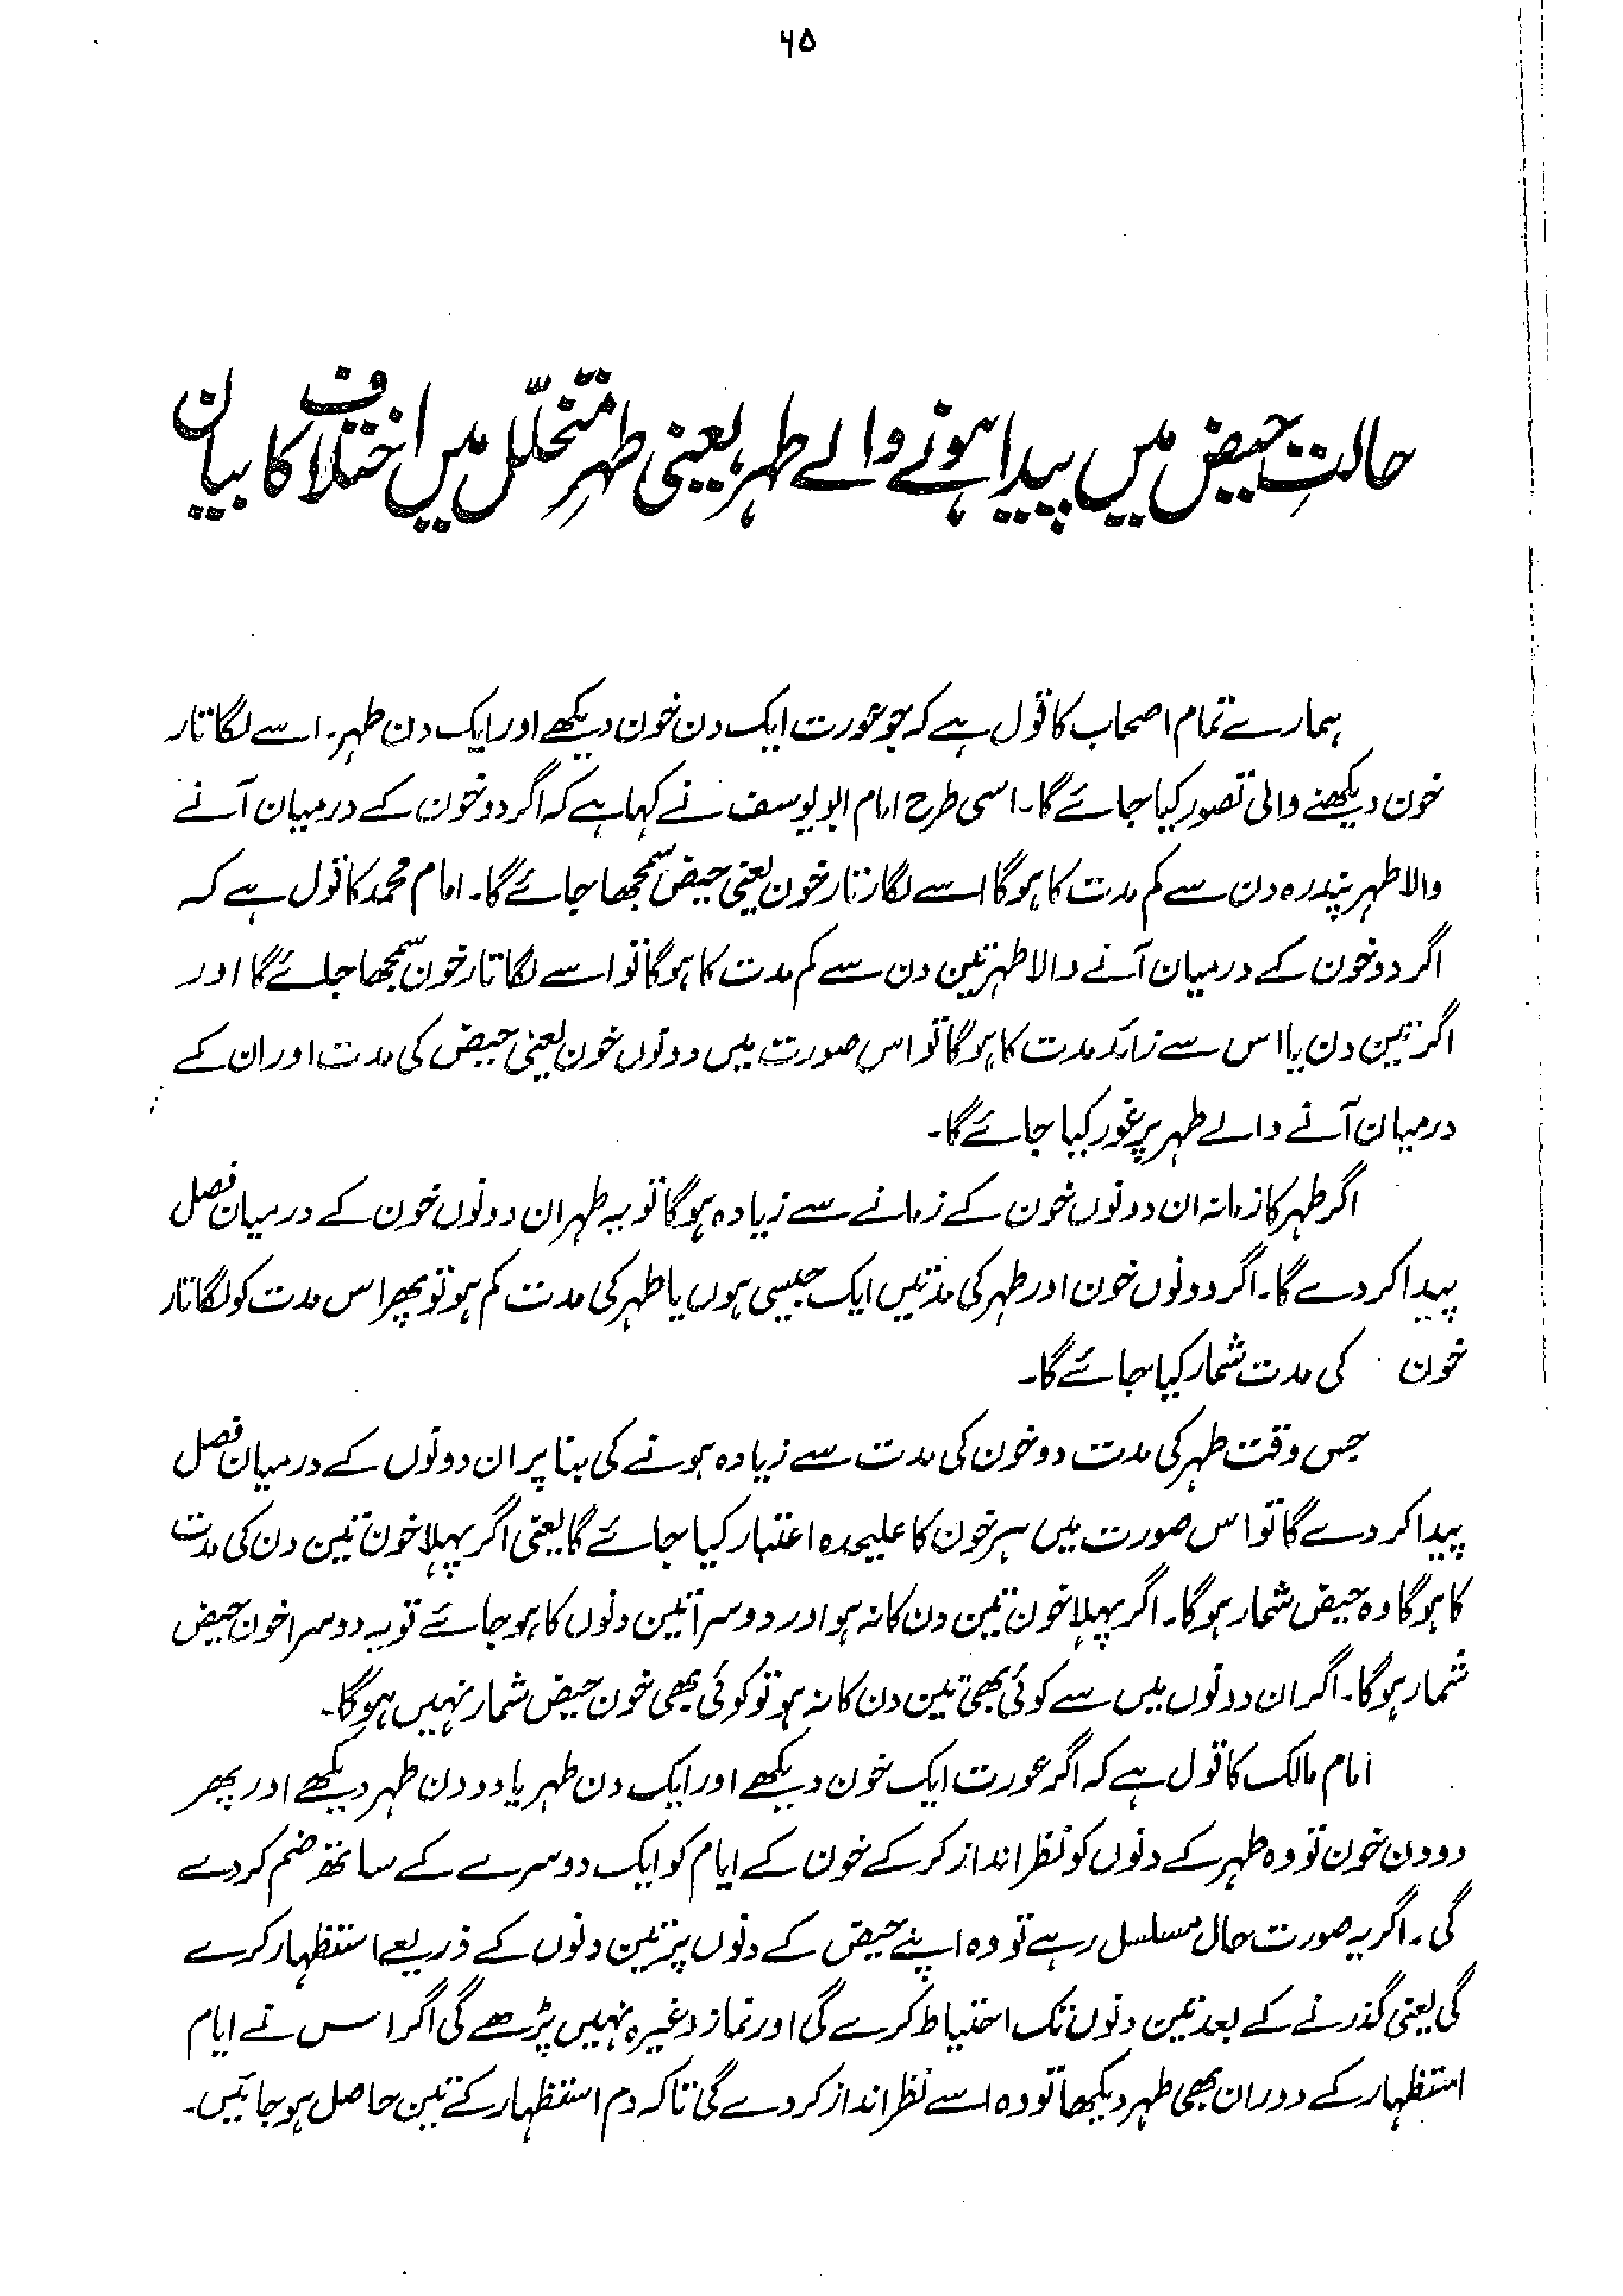 ۶۵
حالتِ حیض میں پیدا ہونے والے طہر یعنی طہرِ متخلّل میں اختلاف کا بیان
ہمارے تمام اصحاب کا قول ہے کہ جو عورت ایک دن خون دیکھے اور ایک دن طہر، اسے لگاتار
خون دیکھنے والی تصور کیا جائے گا۔ اسی طرح امام ابو یوسف نے کہا ہے کہ اگر دو خون کے درمیان آنے
والا طہر پندرہ دن سے کم مدت کا ہو گا اسے لگارتار خون یعنی حیض سمجھا جائے گا۔ امام محمد کا قول ہے کہ
اگر دو خون کے درمیان آنے والا طہر تین دن سے کم مدت کا ہو گا تو اسے لگاتار خون سمجھا جائے گا اور
اگر تین دن یا اس سے زائد مدت کا ہو گا تو اس صورت میں دونوں خون یعنی حیض کی مدت اور ان کے
درمیان آنے والے طہر پر غور کیا جائے گا۔
اگر طہر کا زمانہ ان دونوں خون کے زمانے سے زیادہ ہو گا تو یہ طہر ان دونوں خون کے درمیان فصل
پیدا کر دے گا۔ اگر دونوں خون اور طہر کی مدتیں ایک جیسی ہوں یا طہر کی مدت کم ہو تو پھر اس مدت کو لگاتار
خون کی مدت شمار کیا جائے گا۔
جس وقت طہر کی مدت دو خون کی مدت سے زیادہ ہونے کی بنا پر ان دونوں کے درمیان فصل
پیدا کر دے گا تو اس صورت میں ہر خون کا علیحدہ اعتبار کیا جائے گا یعنی اگر پہلا خون تین دن کی مدت
کا ہو گا وہ حیض شمار ہو گا۔ اگر پہلا خون تین دن کا نہ ہو اور دوسرا تین دنوں کا ہو جائے تو یہ دوسرا خون حیض
شمار ہو گا۔ اگر ان دونوں میں سے کوئی بھی تین دن کا نہ ہو تو کوئی بھی خون حیض شمار نہیں ہو گا۔
امام مالک کا قول ہے کہ اگر عورت ایک خون دیکھے اور ایک دن طہر یا دو دن طہر دیکھے اور پھر
دو دن خون تو وہ طہر کے دنوں کو نظر انداز کر کے خون کے ایام کو ایک دوسرے کے ساتھ ضم کر دے
گی۔ اگر یہ صورت حال مسلسل رہے تو وہ اپنے حیض کے دنوں پر تین دنوں کے ذریعے استظہار کرے
گی یعنی گذرنے کے بعد تین دنوں تک احتیاط کرے گی اور نماز وغیرہ نہیں پڑھے گی اگر اس نے ایام
استظہار کے دوران بھی طہر دیکھا تو وہ اسے نظر انداز کر دے گی تاکہ دم استظہار کے تین حاصل ہو جائیں۔